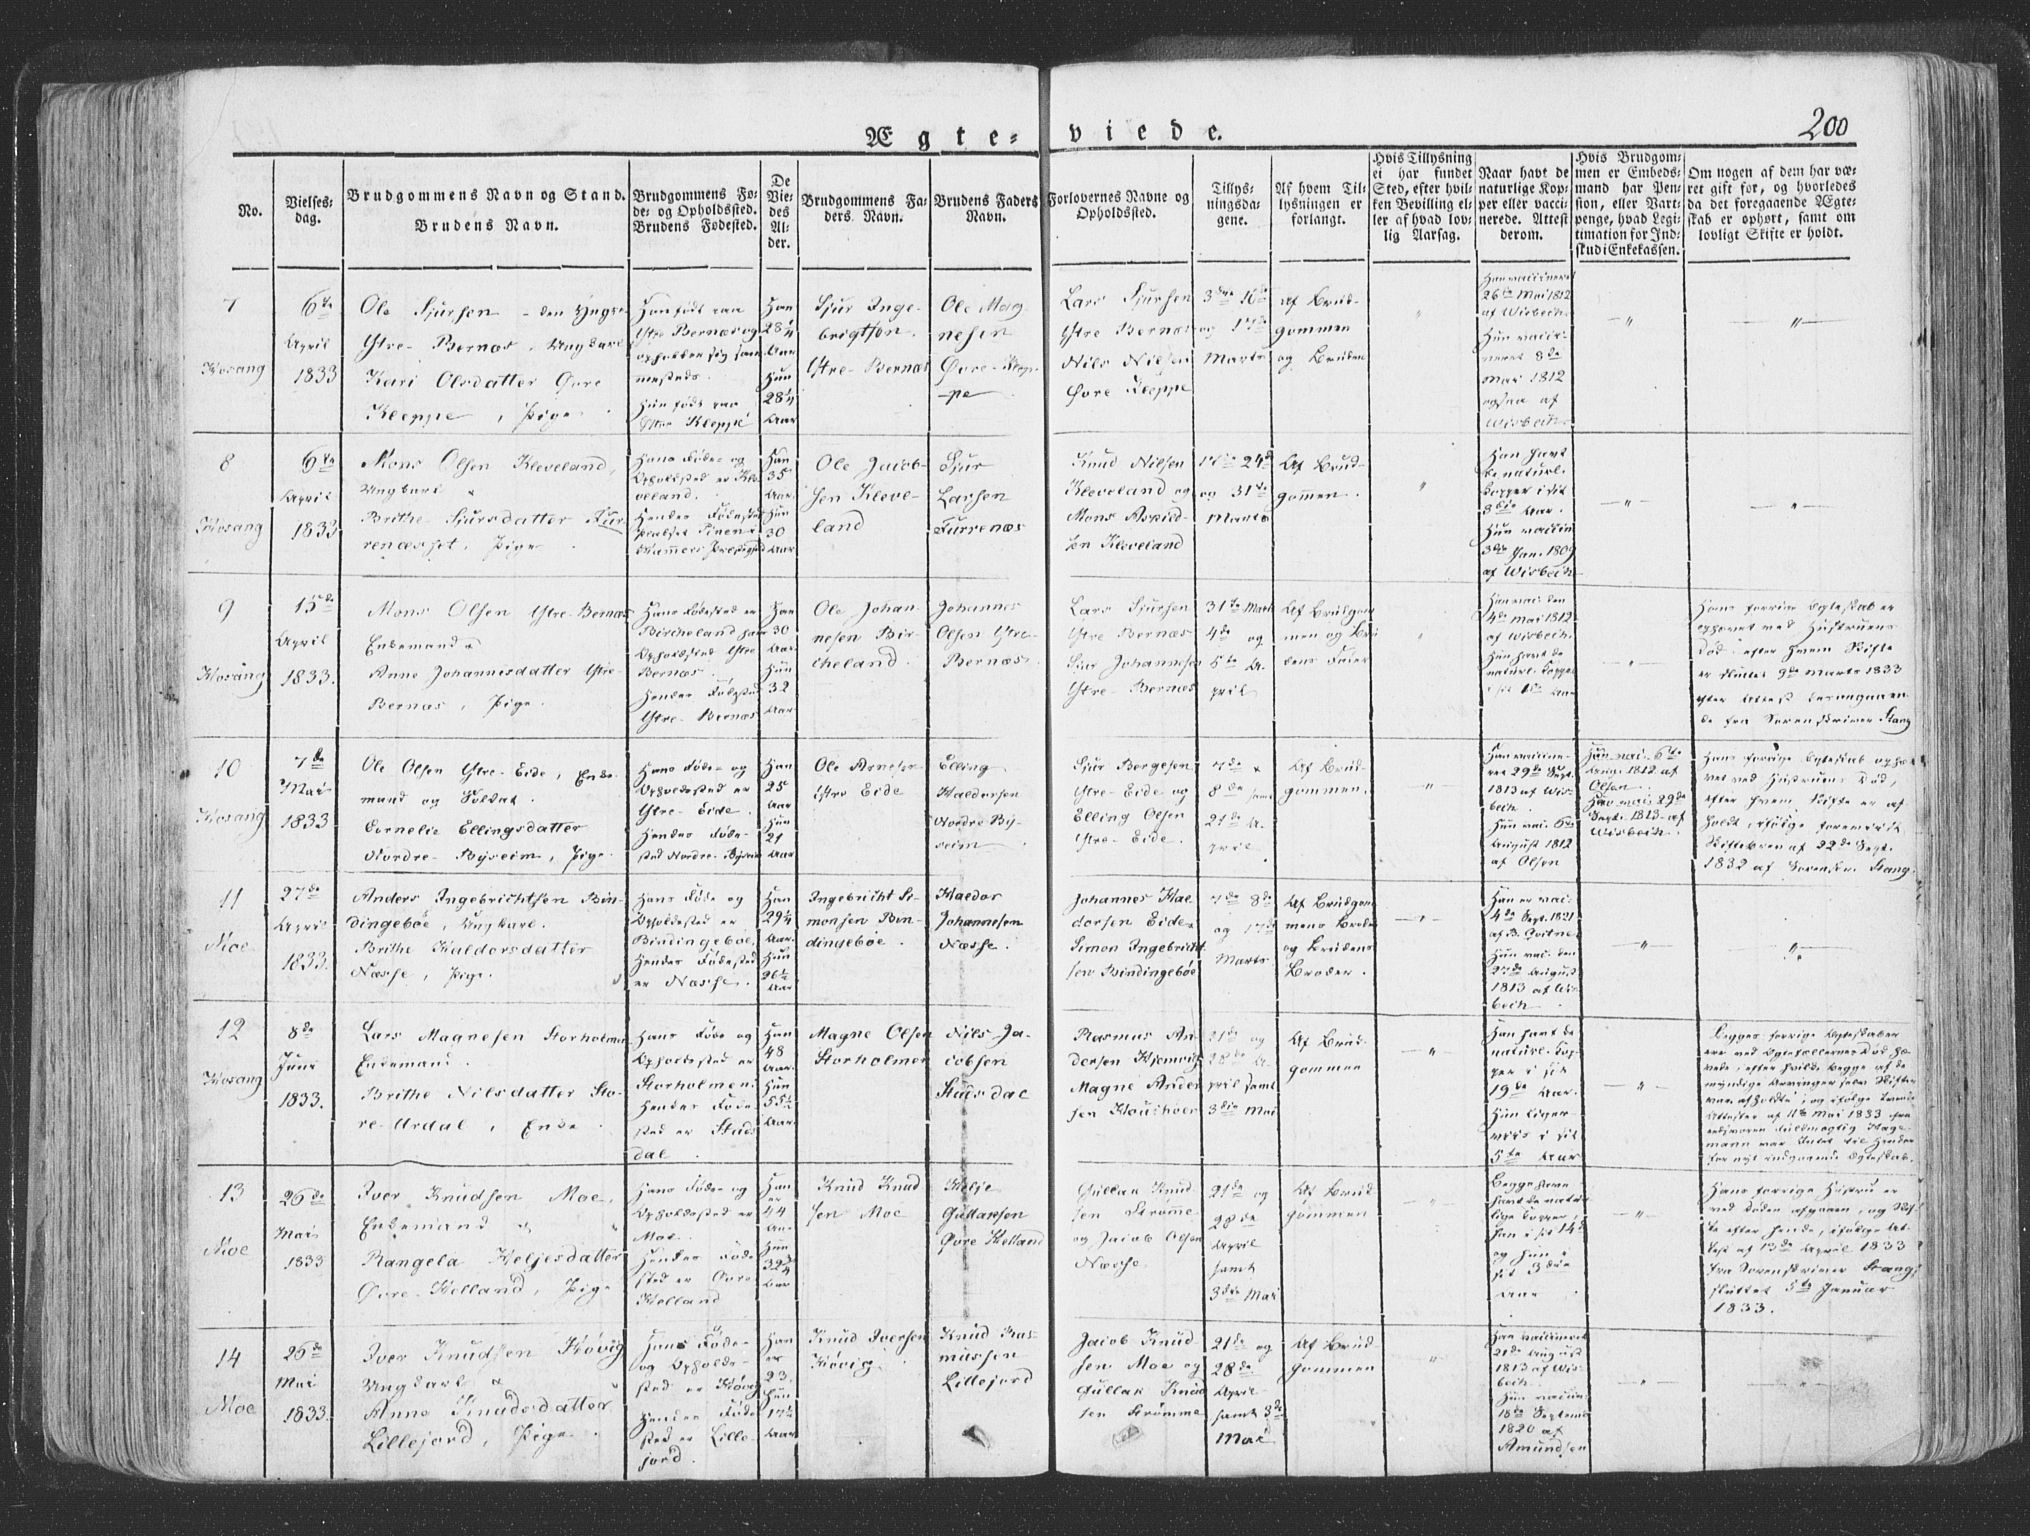 200
Ægte-viede.
No.
Vielses-
dag.
Brudgommens Navn og Stand.
Brudens Navn.
Brudgommens Fø-
de- og Opholdssted.
Brudens Fødested.
De
Vie-
des
Al-
der.
Brudgommens Fa-
ders Navn.
Brudens Faders
Navn.
Forlovernes Navne og
Opholdssted.
Tillys-
ningsda-
gene.
Af hvem Til-
lysningen er
forlangt.
Hvis Tillysning
ei har fundet
Sted, efter hvil-
ken Bevilling el-
ler af hvad lov-
lig Aarsag.
Naar havt de
naturlige Kop-
per eller vacci-
nerede. Attest
derom.
Hvis Brudgom-
men er Embeds-
mand har Pen-
sion, eller Vart-
penge, hvad Legi-
timation for Ind-
skud i Enkekassen.
Om nogen af dem har væ-
ret gift før, og hvorledes
da det foregaaende Ægte-
skab er ophørt, samt om
lovligt Skifte er holdt.
7
Hosang
6te
April
1833
Ole Sjursen - den Yngre
Ystre-Bernæs, Ungkarl
Kari Olsdatter Øvre
Kleppe, Pige.
Han født paa
Ystre Bernæs og
opholder sig sam-
mesteds.
Hun født paa
Kleppe
Han
28 1/4
Aar
Hun
28 1/4
Aar
Sjur Inge-
brigtsen
Ystre-Bernæs
Ole Mag-
nesen
Øvre-Klep-
pe
Lars Sjursen
Ystre Bernæs
Nils Nilsen
Øvre Kleppe
3die 10de
og 17de
Marts
Af Brud-
gommen
og Bruden
"
Han vaccineret
26de Mai 1812
af Wisbech.
Hun vacci-
neret 8de
Mai 1812
ogsaa af
Wisbech.
"
"
8
Hosang
6te
April
1833
Mons Olsen Kleveland,
Ungkarl
Brithe Sjursdatter Fur-
renæsset, Pige.
Hans Føde- og
Opholdsted er Kle-
veland.
Hendes Fødested
Han
35
Aar
Hun
30
Aar
Ole Jacob-
sen Kleve-
land
Sjur
Larsen
Furrenæs
Knud Nilsen
Kleveland og
Mons Askild-
sen Kleveland
17de 24de
og 31te
Marts
Af Brud-
gommen.
"
Han havt
de naturl.
Kopper i sit
8de Aar.
Hun vaccin
3die Jan. 1809
af Wisbech
"
"
9
Hosang
15de
April
1833.
Mons Olsen Ystre-Bernæs
Enkemand
Anne Johannesdatter Ystre-
Bernæs, Pige.
Hans Fødested er
Bircheland hans
Opholdsted Ystre
Bernæs.
Hendes Fødested
Ystre-Bernæs
Han
30
Aar
Hun
32
Aar
Ole Johan-
nesen Bir-
cheland.
Johannes
Olsen Ystre-
Bernæs.
Lars Sjursen
Ystre Bernæs
Sjur Johannesen
Ystre-Bernæs
31te Marts
4de og
5te A-
pril
Af Brudgom-
men og Bru-
dens Fader
"
Han vac. den
4de Mai 1812
af Wisbech.
Hun havt de
naturl. Kopper
"
Hans forrige Egteskab er
ophævet ved Hustruens
Død, efter hvem Skifte
er sluttet 9de Marts 1833
efter Attest
fra Sorenskriver Stang
10
Hosang
7de
Mai
1833
Ole Olsen Ystre-Eide, Enke-
mand og Soldat.
Cornelie Ellingsdatter
Nordre-Byseim, Pige
Hans Føde- og
Opholdsted er
Ystre-Eide.
Hendes Føde-
sted Nordre-Byseim
Han
25
Aar
Hun
21
Aar
Ole Arnesen
Ystre Eide
Elling
Haldorsen
Nordre By-
seim
Sjur Bergesen
Ystre-Eide og
Elling Olsen
Ystre-Eide.
7de
8de samt
21de A-
pril
Af Brud-
gommen.
"
Han vaccine-
ret 29de Sept.
1813 af Wis-
bech.
Hun vac. 6te
August 1812
af Olsen
Hun vac. 6te
Aug. 1812 af
Olsen
Han vac. 29de
Sept. 1813 af
Wisbech.
Hans forrige Egteskab ophæ-
vet ved Hustruens Død,
efter hvem Skifte er af-
holdt, ifølge foreviist
Skiftebrev af 22de Sept.
1832 af Sorenskr. Stang.
11
Moe
27de
April
1833.
Anders Ingebrichtsen Bin-
dingebøe, Ungkarl.
Brithe Haldorsdatter
Næsse, Pige.
Hans Føde og
Opholdsted er
Bindingebøe,
Hendes Fødested
er Næsse.
Han
29 1/4
Aar.
Hun
26 1/2
Aar
Ingebricht Si-
monsen Bin-
dingebøe.
Haldor
Johannesen
Næsse.
Johannes Hal-
dorsen Eide
Simon Ingebricht-
sen Bindingebøe
7de 8de
og 17de
Marts
Af Brudgom-
mens Broder
og Brudens
Broder.
"
Han er vac.
4de Sept. 1821
af B. Qvitne
Hun vac. den
27de August
1813 af Wis-
bech.
"
"
12
Hosang
8de
Juni
1833.
Lars Magnesen Storholmen
Enkemand.
Brithe Nilsdatter Sto-
re-Urdal, Enke.
Hans Føde og
Opholdsted er
Storholmen.
Hendes Føde-
sted er Stads-
dal.
Han
48
Aar.
Hun
55 1/2
Aar.
Magne Olsen
Storholmen
Nils Ja-
cobsen
Stadsdal
Rasmus An-
dersen
Magne Ander-
sen
21de og
28de A-
pril samt
3die Mai
Af Brud-
gommen
"
Han havt de
naturl. Kop-
per i sit
19de Aar.
Hun liger-
viis i sit
5te Aar
"
Begges forrige Egteskaber
ere ved Egtefællernes Død hæ-
vede, efter hvilke begge af de
myndige Arvinger selv Skifter
var afholdte, og ifølge
Attester af 11te Mai 1833 fra
Fuldmægtig Hage-
mann var Intet til Hinder
for nyt indgaaende Egteskab.
13
Moe
26de
Mai
1833
Iver Knudsen Moe,
Enkemand
Rangela Heljesdatter
Øvre-Helland, Pige
Hans Føde- og
Opholdsted er
Moe.
Hendes Føde
sted er Øvre
Helland
Han
er
44
Aar
Hun
32 3/4
Aar
Knud Knud-
sen Moe
Helje
Gullaksen
Øvre Helland
Gullak Knud-
sen Strømme
og Jacob Olsen
Næsse.
21de og
28de
April
samt
3die Mai
Af Brud-
gommen
"
Begge have
havt de natur-
lige Kopper,
han i sit 14de
og hun i
sit 3die
Aar
"
Hans forrige Hustru er
ved Døden afgaaen, og Skif-
te efter hende, ifølge At-
test af 13de April 1833
fra Sorenskriver Stang,
sluttet 5te Januar
1833.
14
Moe
26de
Mai
1833.
Iver Knudsen Høvig
Ungkarl
Anne Knudsdatter
Lillejord, Pige.
Hans Føde-
og Opholds-
sted er Høvig
Hendes Føde
sted er Lille-
jord.
Han
er
23.
Hun
17 1/2
Aar
Knud Iversen
Høvig
Knud Ras-
mussen
Lillejord
Jacob Knud-
sen Moe og
Gullak Knud-
sen Strømme
21de og
28de
April
samt 3de
Mai
Af Brud-
gommen
"
Han vaccineret
21de August
1813 af Wis-
bech.
Hun vaccin.
18de Septemb.
1820 af
Amundsen
"
"